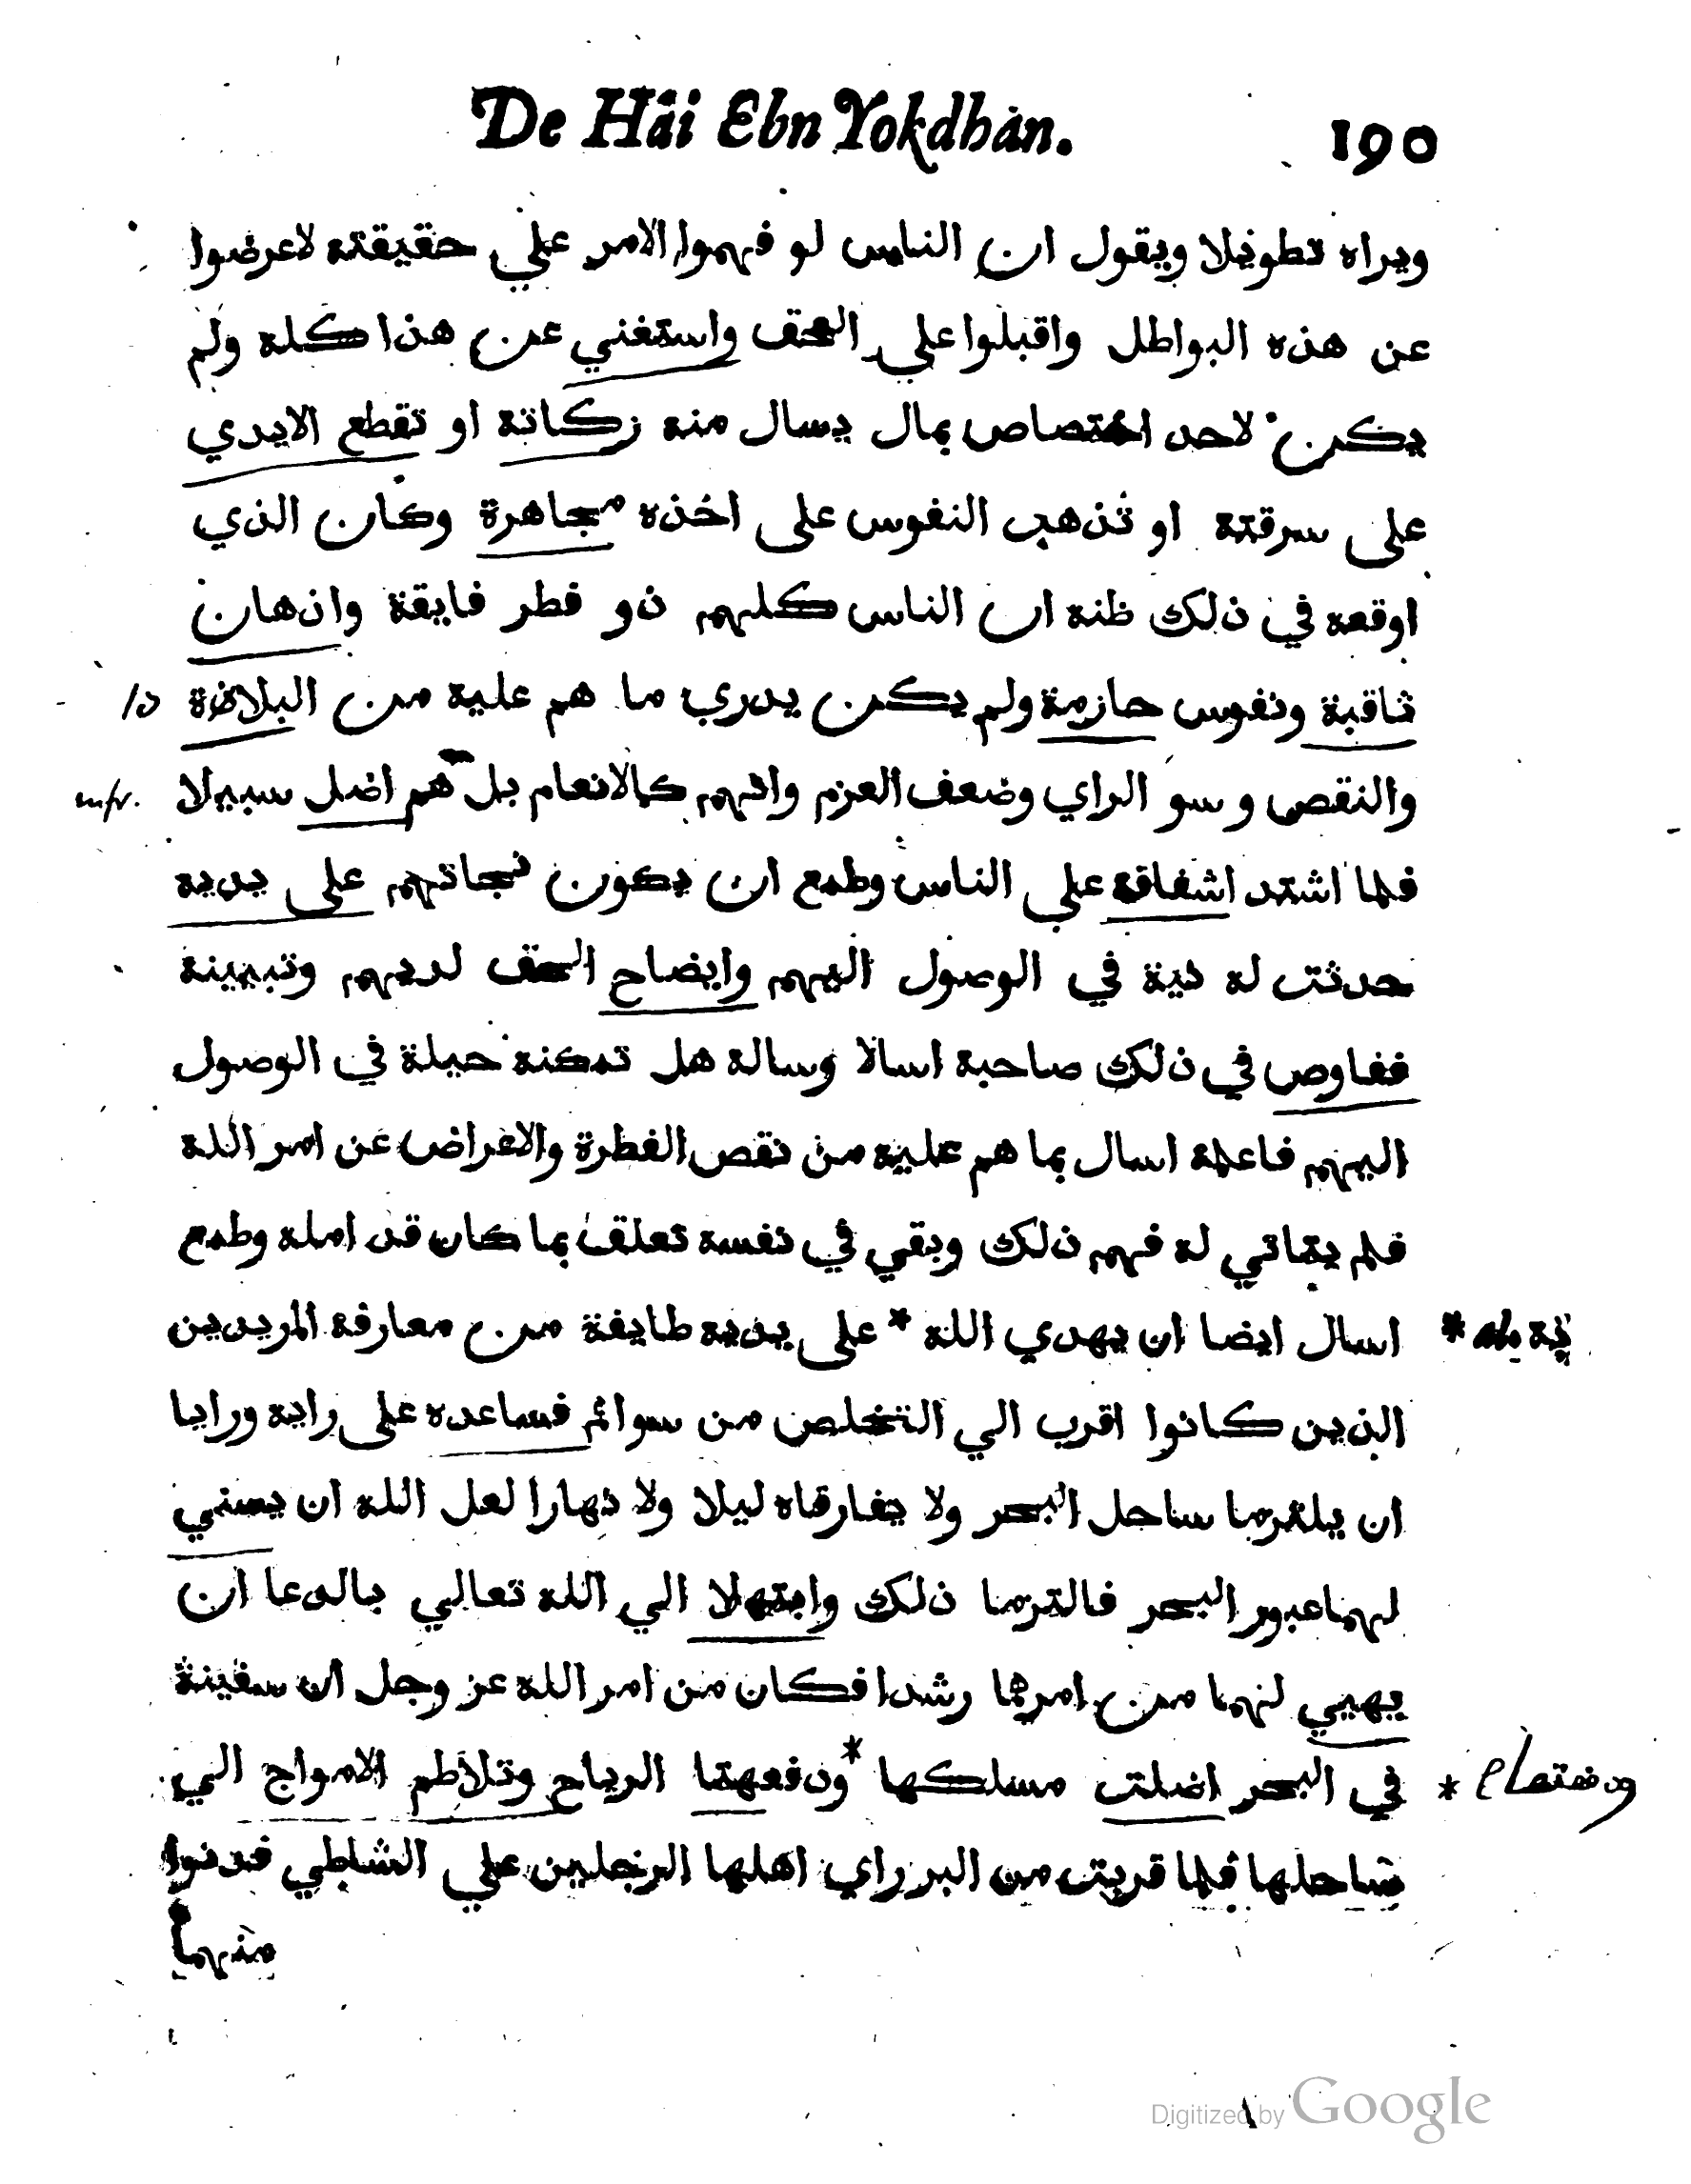 De Hâi Ebn Yokdhân. 190
ويراه تطويلا ويقول ان الناس لو فهموا الامر علي حقيقته لاعرضوا
عن هذه البواطل واقبلوا علي الحق واستغني عن هذا كله ولم
يكن لاحد اختصاص بمال يسال منه زكاته او تقطع الايدي
على سرقته او تذهب النفوس على اخذه مجاهرة وكان الذي
اوقعه في ذلك ظنه ان الناس كلهم ذو فطر فايقة واذهان
ثاقبة ونفوس حازمة ولم يكن يدري ما هم عليه من البلاذة د/
والنقص وسو الراي وضعف العزم وانهم كالانعام بل هم اضل سبيلا
فلما اشتد اشفاقه علي الناس وطمع ان يكون نجاتهم على يديه
حدثت له نية في الوصول اليهم وايضاح الحق لديهم وتبيينه
ففاوض في ذلك صاحبه اسالا وساله هل تمكنه حيلة في الوصول
اليهم فاعلمه اسال بما هم عليه من نقص الفطرة والاعراض عن امر الله
فلم يتاتي له فهم ذلك وبقي في نفسه تعلق بما كان قد امله وطمع
اسال ايضا ان يهدي الله * على يديه طايفة من معارفه المريدين
الذين كانوا اقرب الي التخلص من سوائم فساعده على رايه ورايا
ان يلتزما ساحل البحر ولا يفارقاه ليلا ولا نهارا لعل الله ان يسني
لهما عبور البحر فالتزما ذلك وابتهلا الي الله تعالي بالدعا ان
يهيي لهما من امرهما رشدا فكان من امر الله عز وجل ان سفينة
في البحر اضلت مسلكها * ودفعهتا الرياح وتلاطم الامواج الي
ساحلها فلما قربت من البر راي اهلها الرجلين علي الشاطي فدنوا
منهما
Digitized by Google